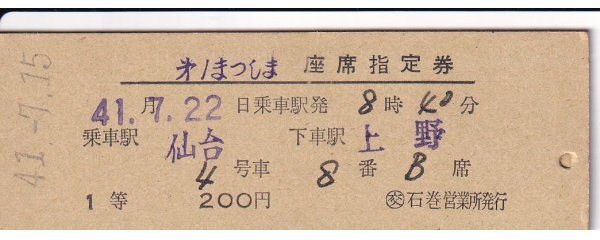 41.-7.15
才1まつしま 座席指定券
41.月7.22日乗車駅発 8時40分
乗車駅 仙台 下車駅 上野
4号車 8番 B席
1等 200円 ㊋石巻営業所発行